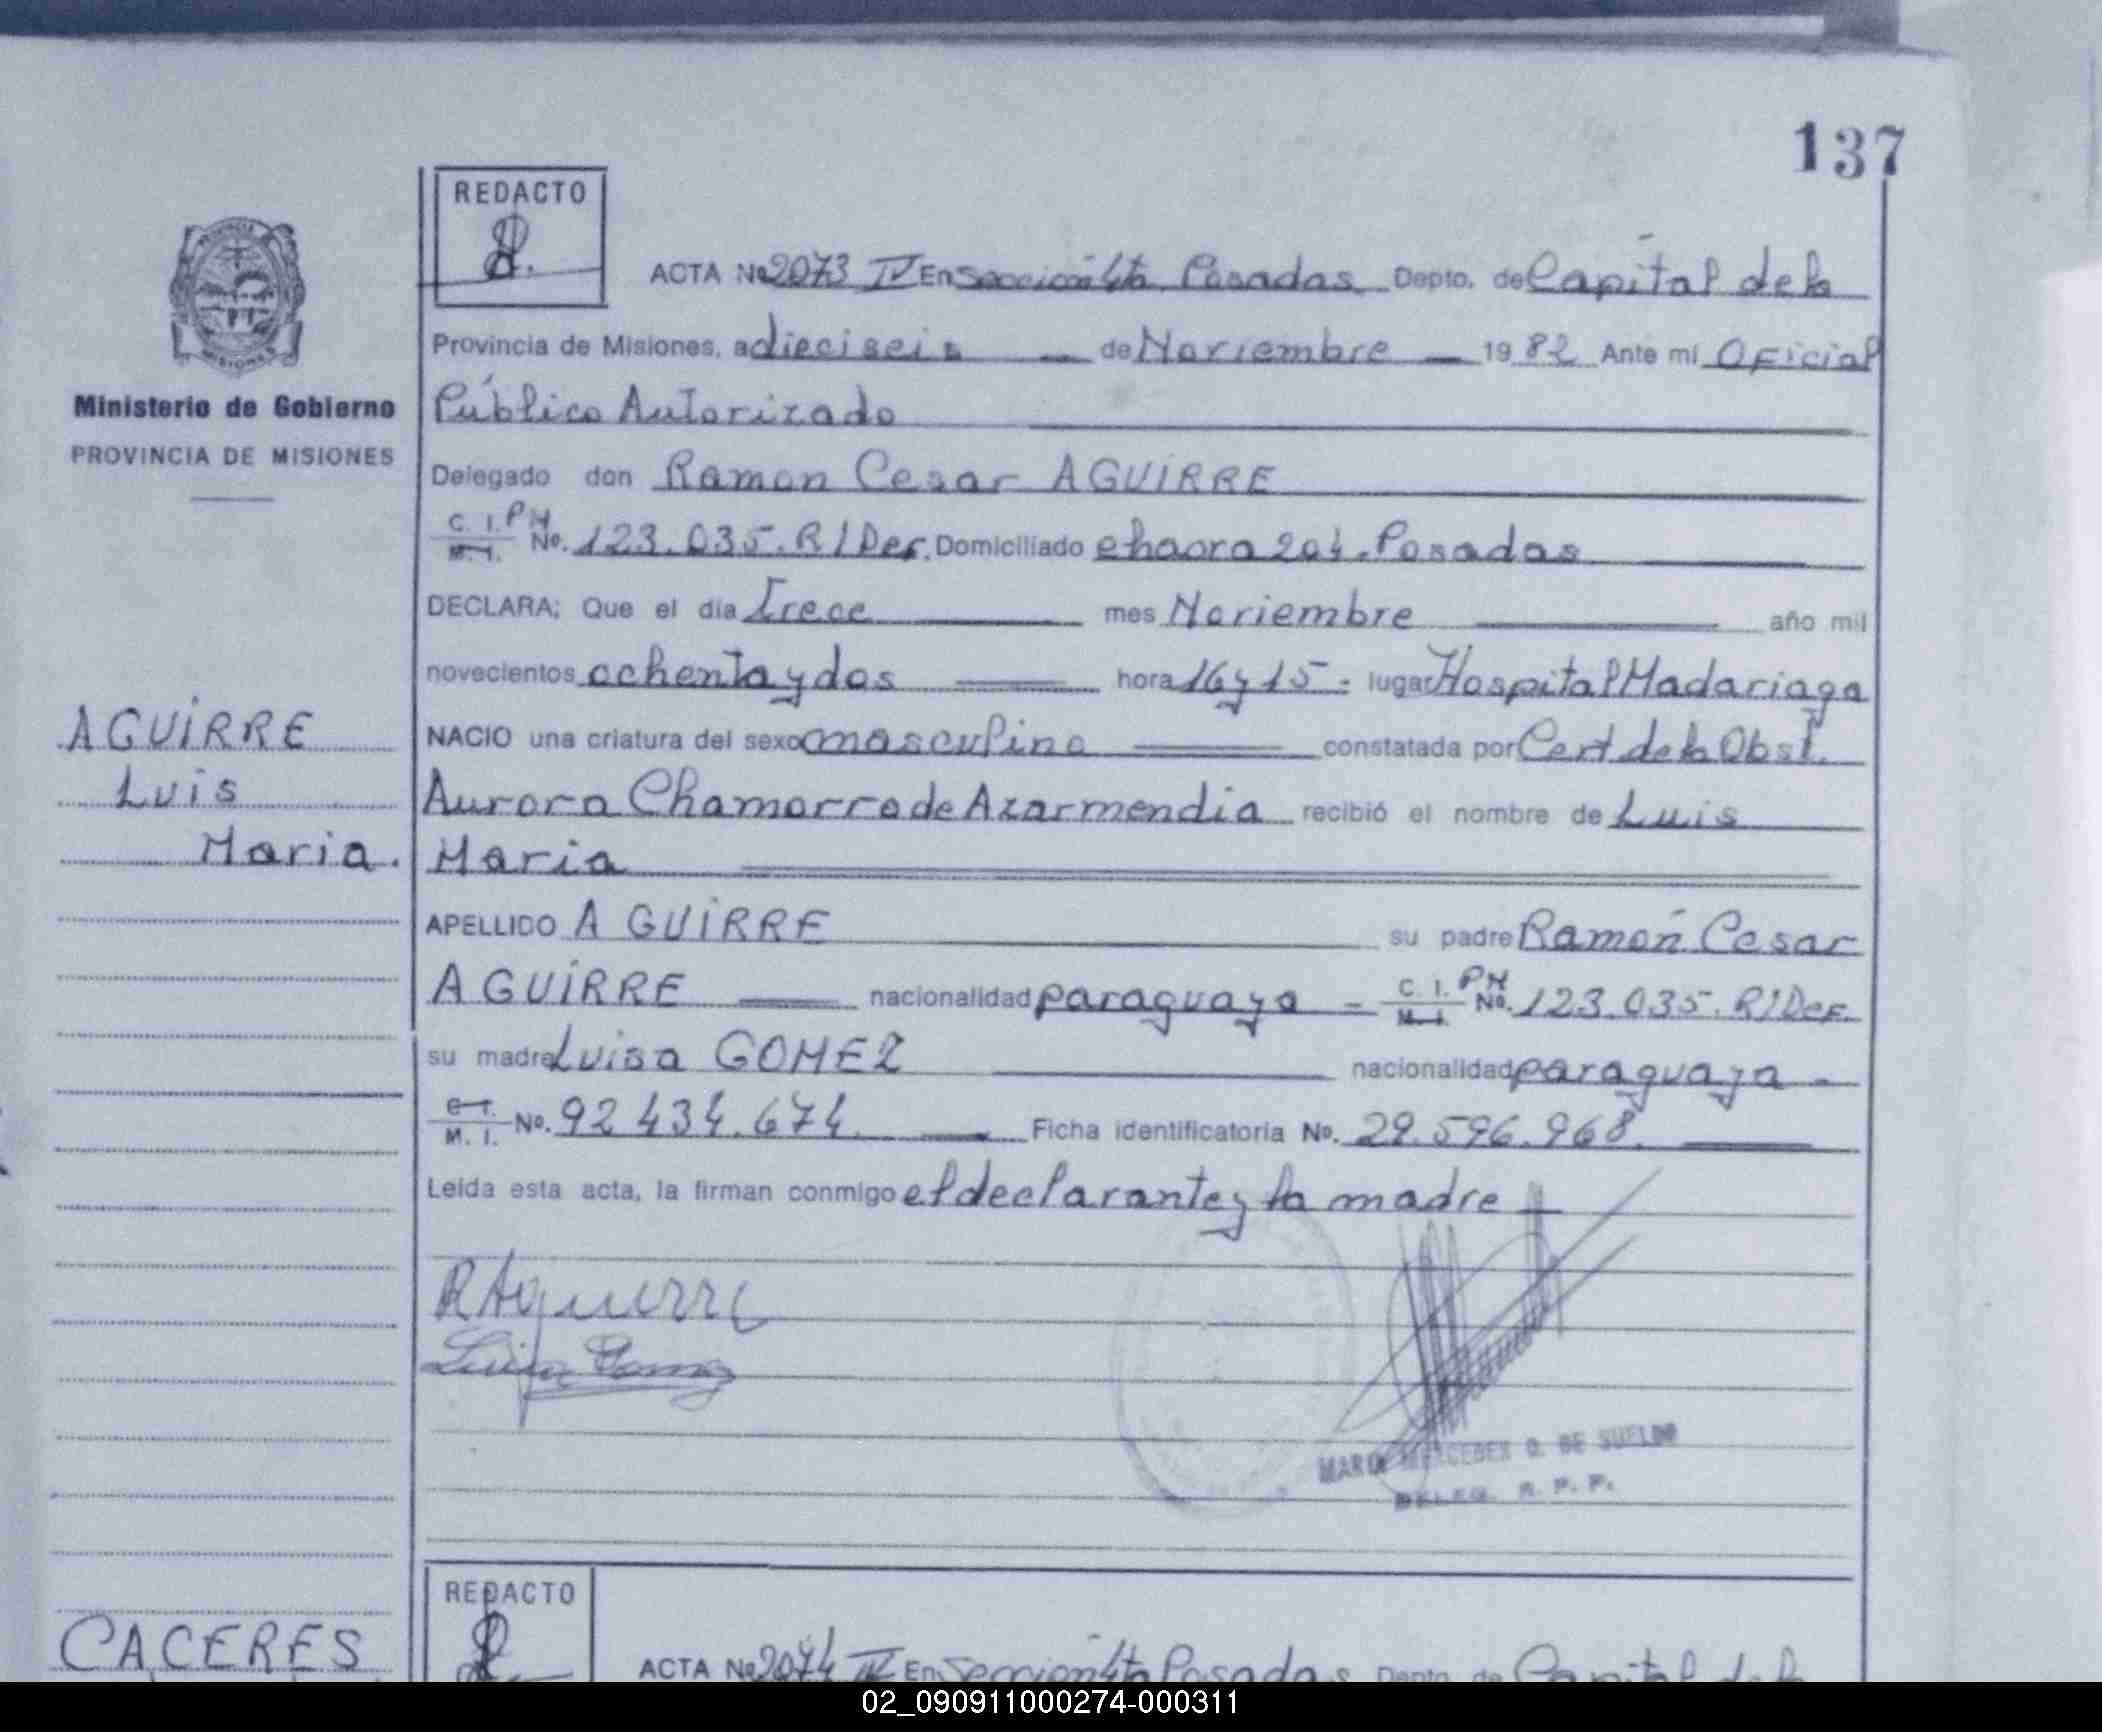 137
REDACTO
ACTA No 2073 IV En Sección 4ta Posadas Depto. de Capital de la
Provincia de Misiones, a dieciseis de Noviembre 1982 Ante mí Oficial
Ministerio de Gobierno
Público Autorizado
PROVINCIA DE MISIONES
Delegado don Ramon Cesar AGUIRRE
C. I. PN M. I. No. 123.035. R/Def. Domiciliado chacra 204. Posadas
DECLARA: Que el día Trece mes Noviembre año mil
novecientos ochenta y dos hora 16 y 15 lugar Hospital Madariaga
AGUIRRE
NACIO una criatura del sexo masculino constatada por Cert de la Obst.
Luis
Aurora Chamorro de Azarmendia recibió el nombre de Luis
Maria.
Maria
APELLIDO AGUIRRE su padre Ramón Cesar
AGUIRRE nacionalidad paraguaya C. I. PN M. I. No. 123.035. R/Def.
su madre Luisa GOMEZ nacionalidad paraguaya
C. I. M. I. No. 92 434.674 Ficha identificatoria No. 29.596.968.
Leída esta acta, la firman conmigo el declarante y la madre
RAguirre
Luisa Gomez
MARIA MERCEDES G. DE SUELDO
DELEG. R. P. P.
REDACTO
CACERES
ACTA No 2074 IV En Sección 4ta Posadas Depto. de Capital de la
02_090911000274-000311